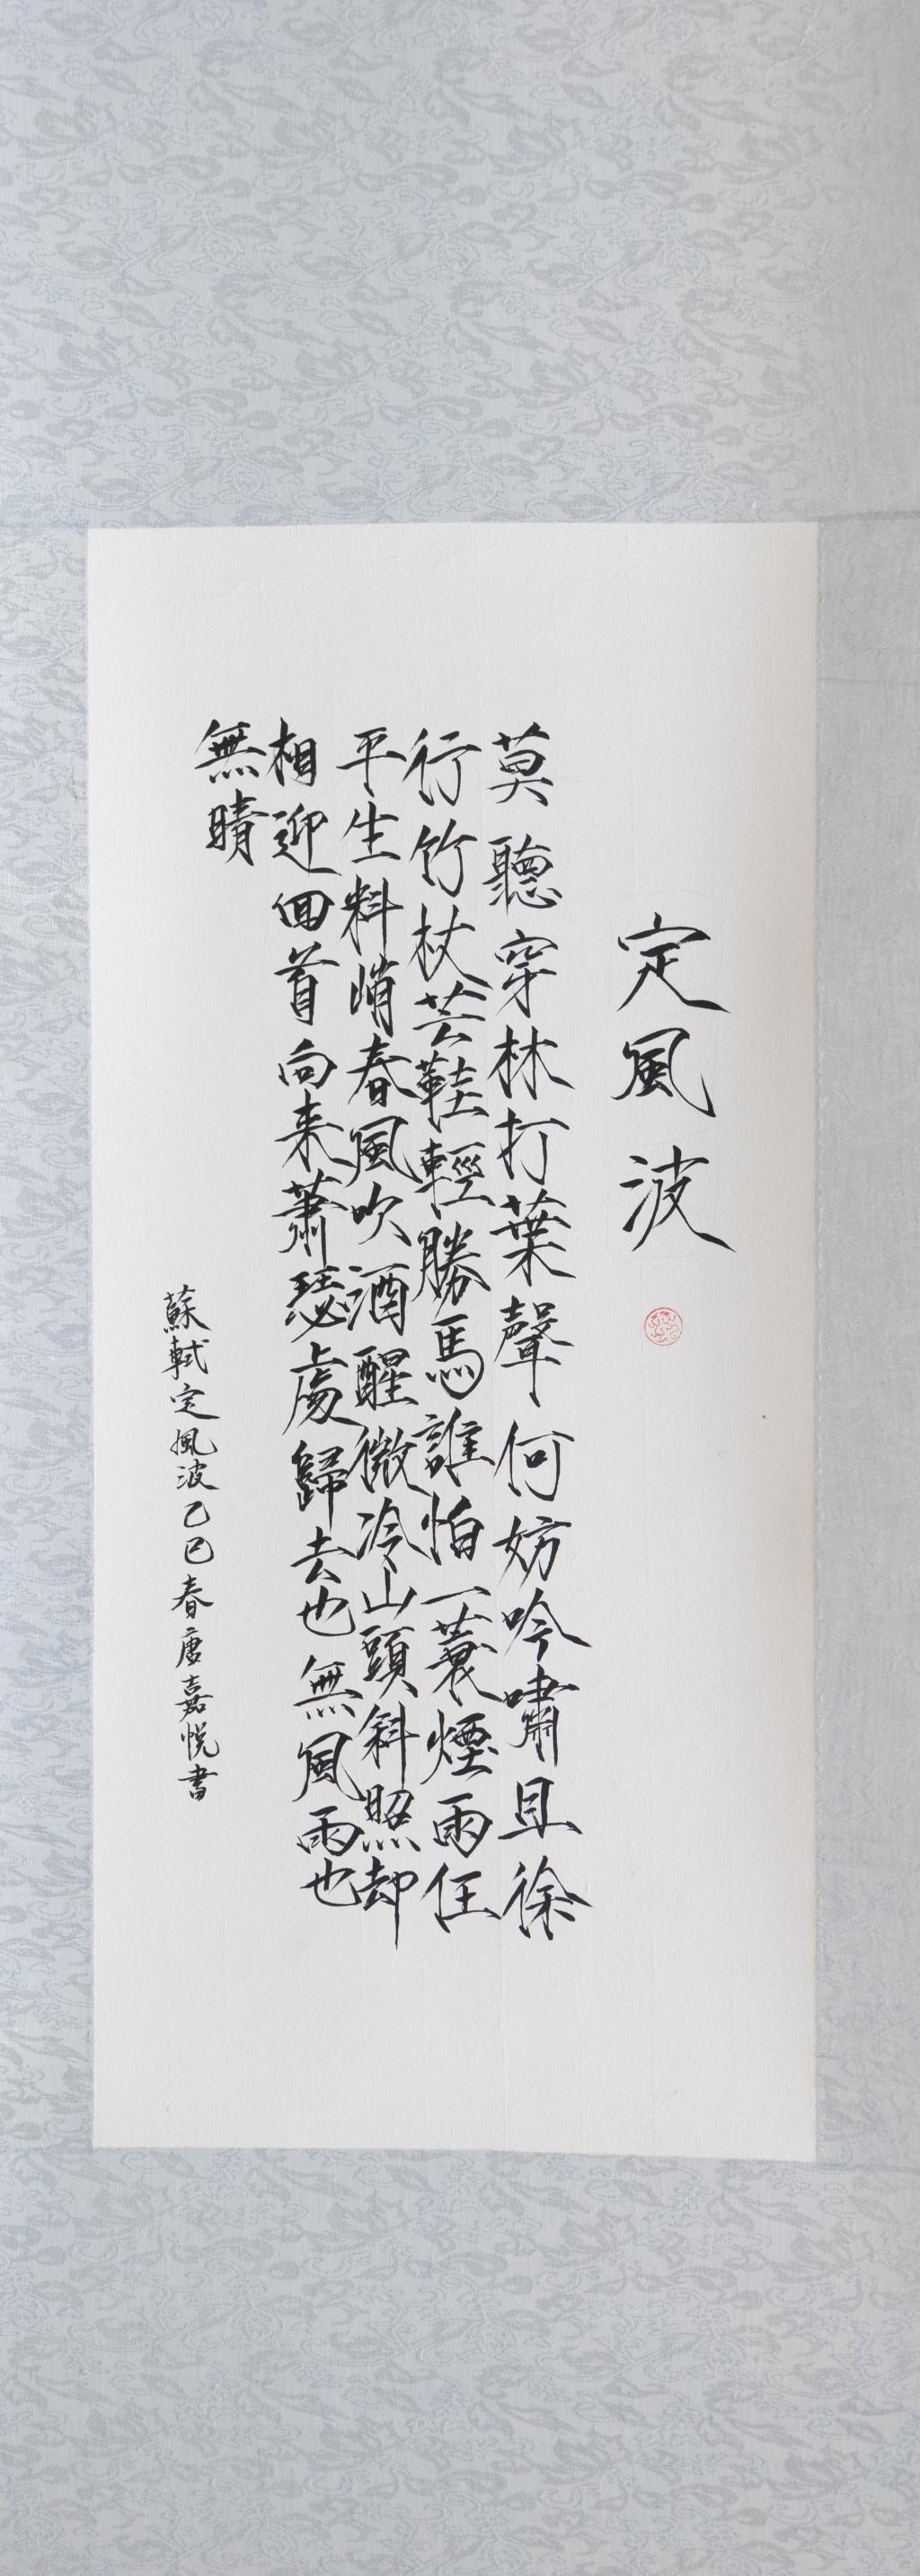 定風波
莫聽穿林打葉聲何妨吟嘯且徐
行竹杖芸鞋輕勝馬誰怕一蓑煙雨任
平生料峭春風吹酒醒微冷山頭斜照却
相迎回首向来蕭瑟處歸去也無風雨也
無晴
蘇軾定風波乙巳春唐嘉悦書